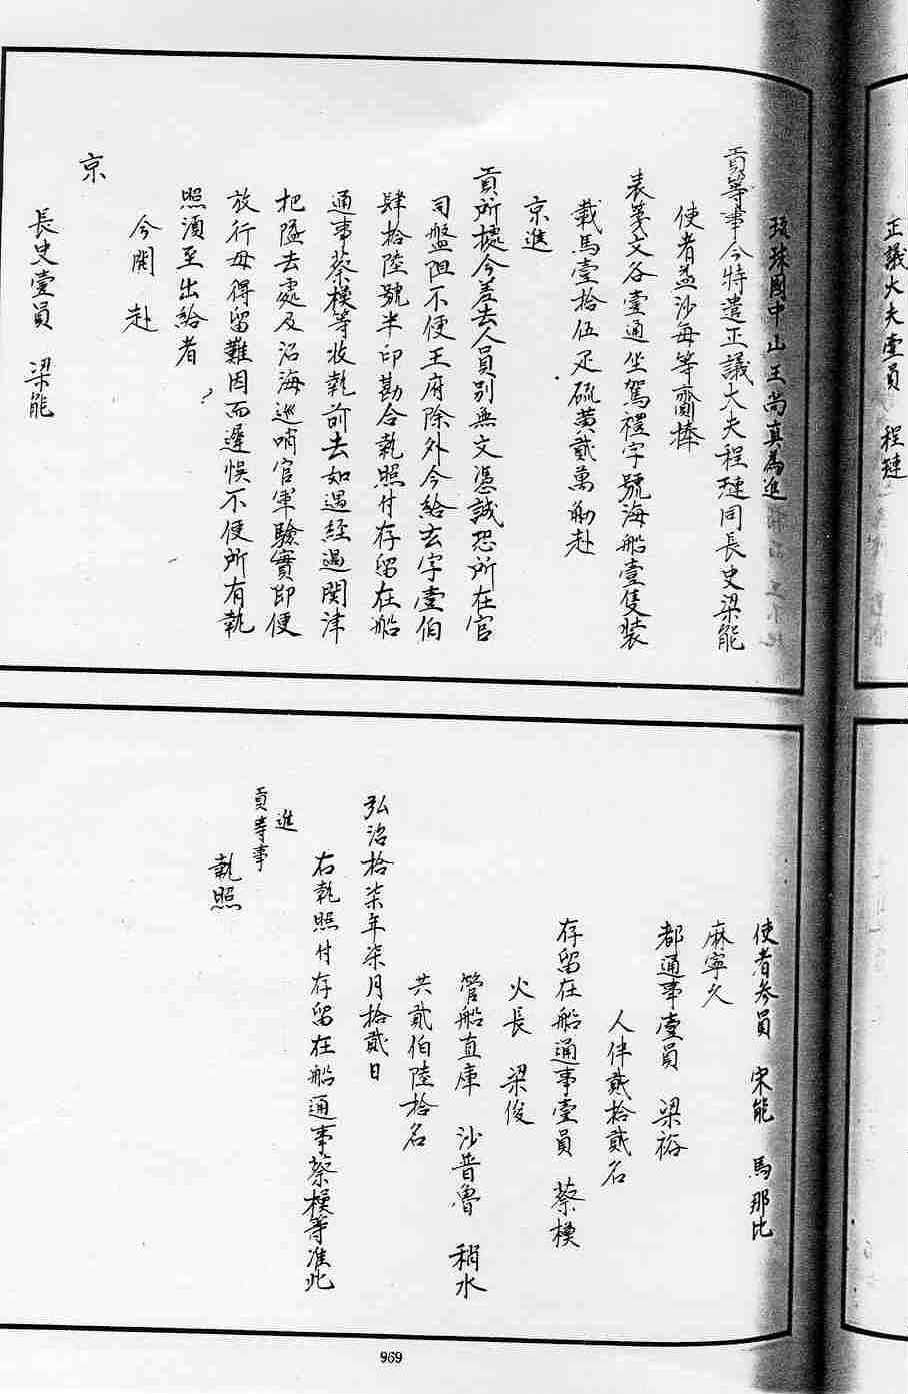 正議大夫壹員　程璉
琉球國中山王尚真為進
貢等事今特遣正議大夫程璉同長史梁能
使者益沙每等齎捧
表箋文各壹通坐駕禮字號海船壹隻裝
載馬壹拾伍疋硫黃貳萬觔赴
京進
貢所據今差去人員別無文憑誠恐所在官
司盤阻不便王府除外今給去字壹伯
肆拾陸號半印勘合執照付存留在船
通事蔡樸等收執前去如遇經過関津
把隘去處及沿海巡哨官軍驗實即便
放行毋得留難因而遲悞不便所有執
照須至出給者
今開　赴
京
長史壹員　梁能
使者參員　宋能　馬那比
麻寧久
都通事壹員　梁裕
人伴貳拾貳名
存留在船通事壹員　蔡樸
火長　梁俊
管船直庫　沙普魯　稍水
共貳伯陸拾名
弘治拾柒年柒月拾貳日
右執照付存留在船通事蔡樸等准此
進
貢等事
執照
969